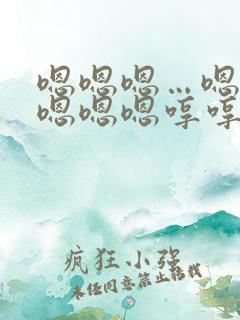 嗯嗯嗯…嗯
嗯嗯嗯哼哼
疯狂小强
未经同意禁止转载